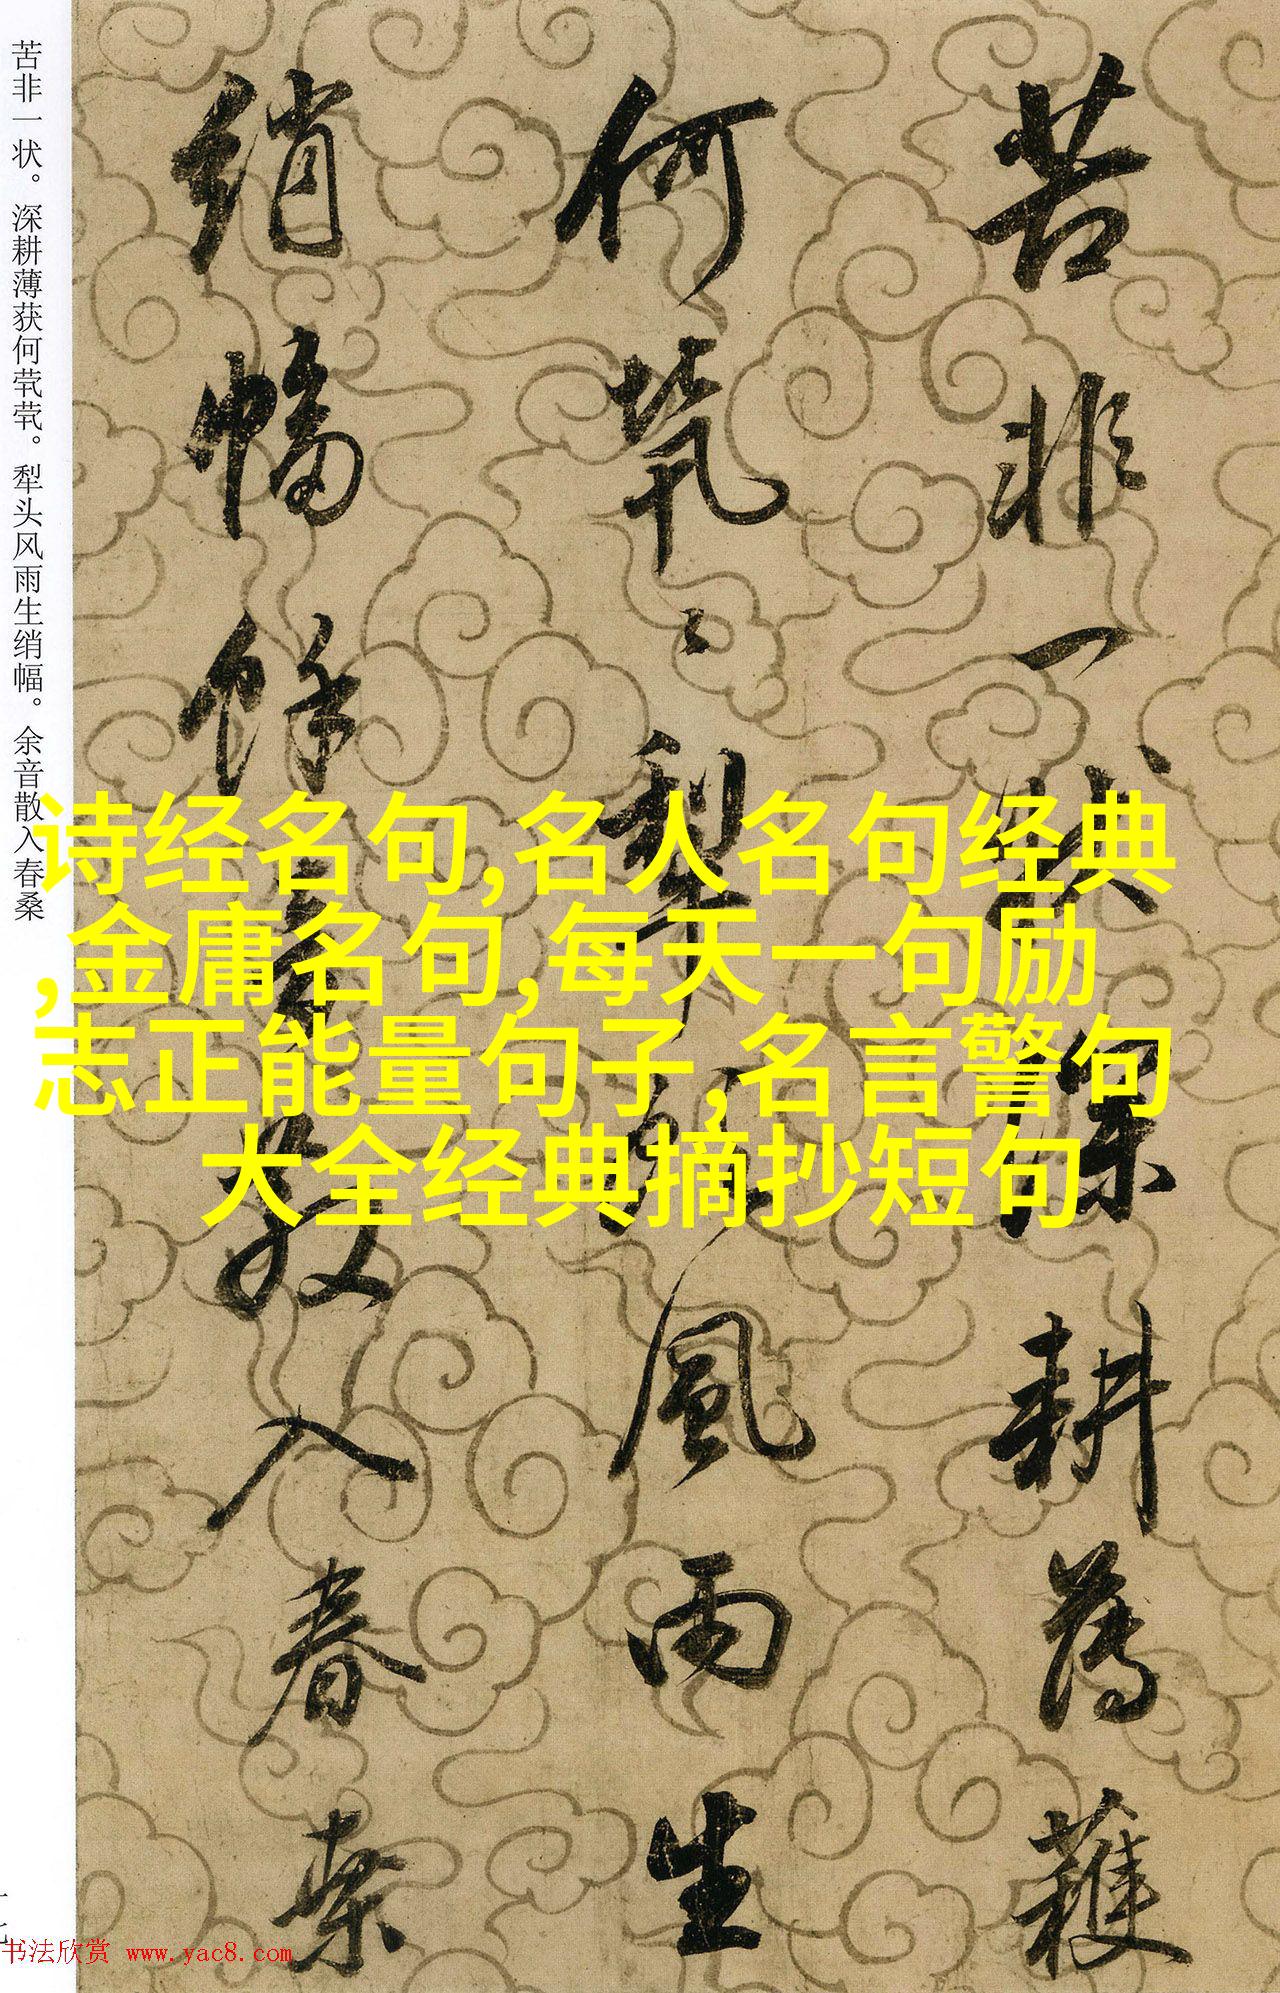 苦非一状深耕薄获
何茕〻犁头风雨生
绡幅余音散入春桑
苦非一状。深耕薄获何茕茕。犁头风雨生绡幅。余音散入春桑
诗经名句,名人名句经典
,金庸名句,每天一句励
志正能量句子,名言警句
大全经典摘抄短句
十七
书法欣赏 www.yac8.com